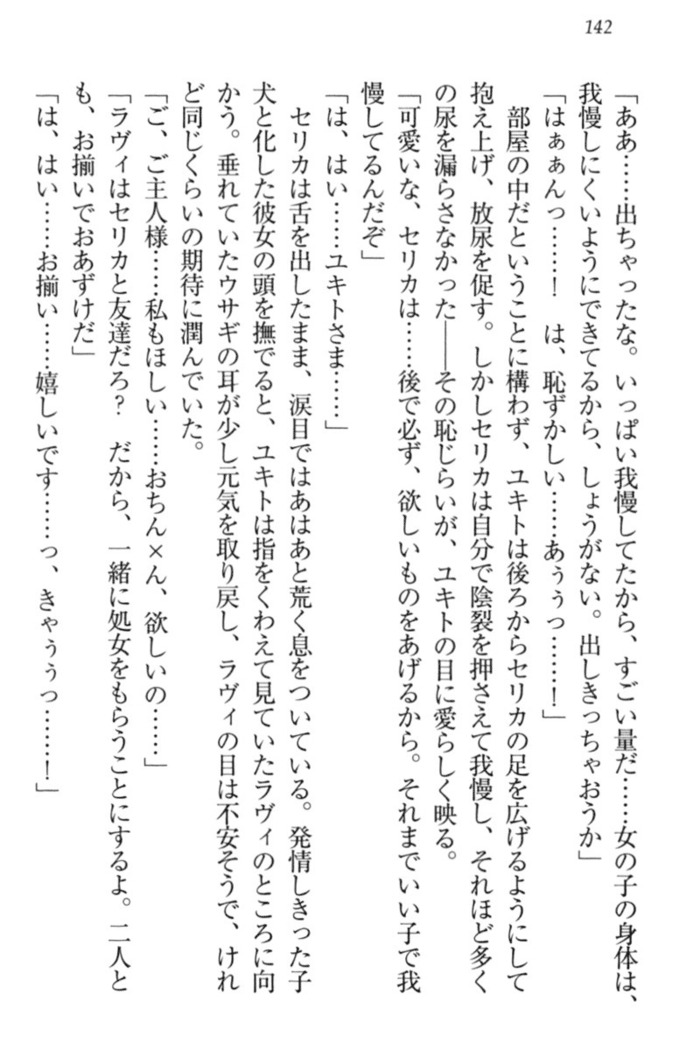 142
「ああ……出ちゃったな。いっぱい我慢してたから、すごい量だ……女の子の身体は、
我慢しにくいようにできてるから、しょうがない。出しきっちゃおうか」
「はぁぁんっ……！　は、恥ずかしい……あぅぅっ……！」
　部屋の中だということに構わず、ユキトは後ろからセリカの足を広げるようにして
抱え上げ、放尿を促す。しかしセリカは自分で陰裂を押さえて我慢し、それほど多く
の尿を漏らさなかった――その恥じらいが、ユキトの目に愛らしく映る。
「可愛いな、セリカは……後で必ず、欲しいものをあげるから。それまでいい子で我
慢してるんだぞ」
「は、はい……ユキトさま……」
　セリカは舌を出したまま、涙目ではあはあと荒く息をついている。発情しきった子
犬と化した彼女の頭を撫でると、ユキトは指をくわえて見ていたラヴィのところに向
かう。垂れていたウサギの耳が少し元気を取り戻し、ラヴィの目は不安そうで、けれ
ど同じくらいの期待に潤んでいた。
「ご、ご主人様……私もほしい……おちん×ん、欲しいの……」
「ラヴィはセリカと友達だろ？　だから、一緒に処女をもらうことにするよ。二人と
も、お揃いでおあずけだ」
「は、はい……お揃い……嬉しいです……っ、きゃぅぅっ……！」